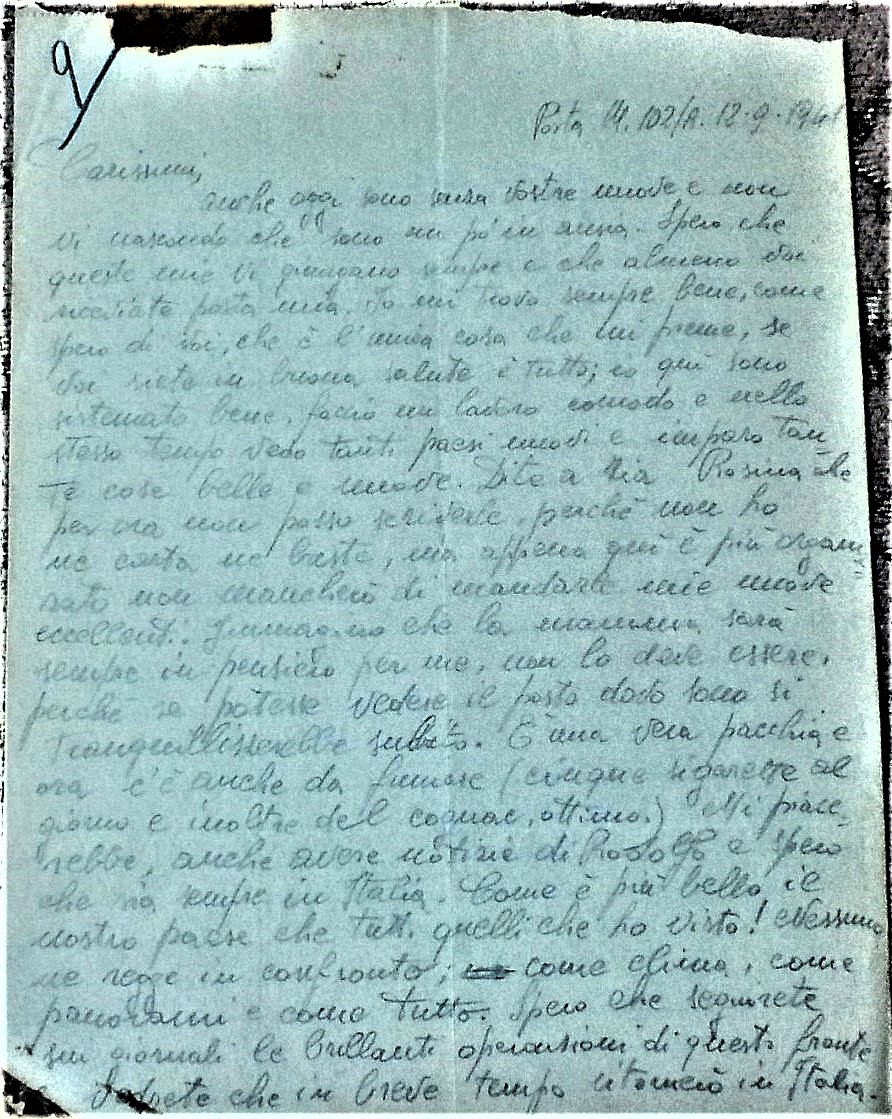 9
Posta M. 102/A. 12-9-1941
Carissimi,
anche oggi sono senza vostre nuove e non
vi nascondo che sono un pò in ansia. Spero che
queste mie vi giungano sempre e che almeno voi
riceviate posta mia. Io mi trovo sempre bene, come
spero di voi, che è l'unica cosa che mi preme, se
voi siete in buona salute è tutto; io qui sono
sistemato bene, faccio un lavoro comodo e nello
stesso tempo vedo tanti paesi nuovi e imparo tan
te cose belle e nuove. Dite a zia Rosina che
per ora non posso scriverle, perchè non ho
ne carta ne buste, ma appena qui è più organiz=
zato non mancherò di mandarle mie nuove
eccellenti. Immagino che la mamma sarà
sempre in pensiero per me, non lo deve essere,
perchè se potesse vedere il posto dove sono si
tranquillizzerebbe subito. E' una vera pacchia e
ora c'è anche da fumare (cinque sigarette al
giorno e inoltre del cognac, ottimo.) Mi piace
rebbe, anche avere notizie di Rodolfo e spero
che sia sempre in Italia. Come è più bello il
nostro paese che tutti quelli che ho visto! Nessuno
ne regge in confronto; come clima, come
panorami e come tutto. Spero che seguirete
sui giornali le brillanti operazioni di questo fronte
e vedrete che in breve tempo ritornerò in Italia.